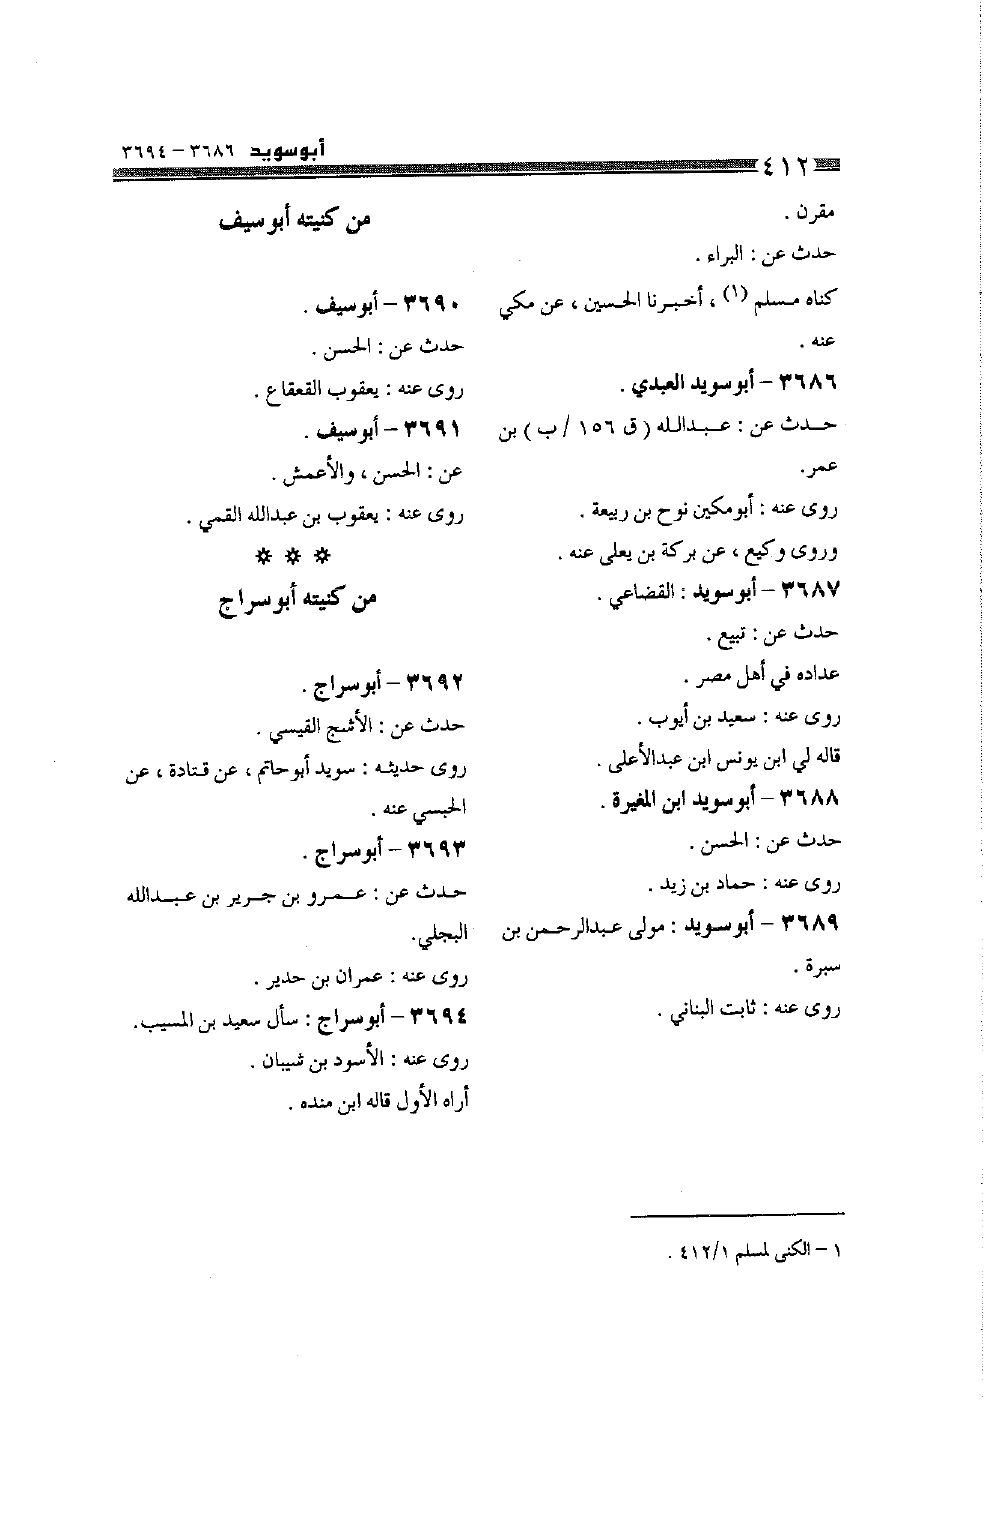 أبوسويد ٣٦٨٦ – ٣٦٩٤
٤١٢
مقرن .
حدث عن : البراء .
كناه مسلم (١) ، أخبرنا الحسين ، عن مكي
عنه .
٣٦٨٦ – أبوسويد العبدي .
حدث عن : عبدالله ( ق ١٥٦ / ب ) بن
عمر.
روى عنه : أبومكين نوح بن ربيعة .
وروى وكيع ، عن بركة بن يعلى عنه .
٣٦٨٧ – أبوسويد : القضاعي .
حدث عن : تبيع .
عداده في أهل مصر .
روى عنه : سعيد بن أيوب .
قاله لي ابن يونس ابن عبدالأعلى .
٣٦٨٨ – أبوسويد ابن المغيرة .
حدث عن : الحسن .
روى عنه : حماد بن زيد .
٣٦٨٩ – أبوسويد : مولى عبدالرحمن بن
سبرة .
روى عنه : ثابت البناني .
من كنيته أبوسيف
٣٦٩٠ – أبوسيف .
حدث عن : الحسن .
روى عنه : يعقوب القعقاع .
٣٦٩١ – أبوسيف .
عن : الحسن ، والأعمش .
روى عنه : يعقوب بن عبدالله القمي .
* * *
من كنيته أبوسراج
٣٦٩٢ – أبوسراج .
حدث عن : الأشج القيسي .
روى حديثه : سويد أبوحاتم ، عن قتادة ، عن
الحبسي عنه .
٣٦٩٣ – أبوسراج .
حدث عن : عمرو بن جرير بن عبدالله
البجلي.
روى عنه : عمران بن حدير .
٣٦٩٤ – أبوسراج : سأل سعيد بن المسيب.
روى عنه : الأسود بن شيبان .
أراه الأول قاله ابن منده .
١ – الكنى لمسلم ٤١٢/١ .